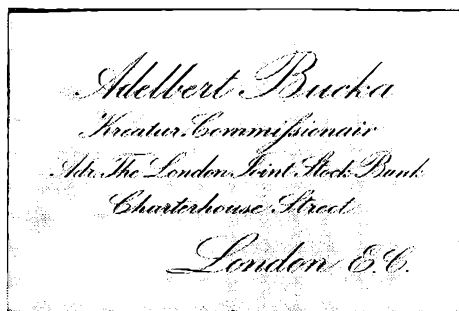 Adelbert Bucka
Kreatur. Commissionair
Adr. The London Joint Stock Bank
Charterhouse Street
London E.C.